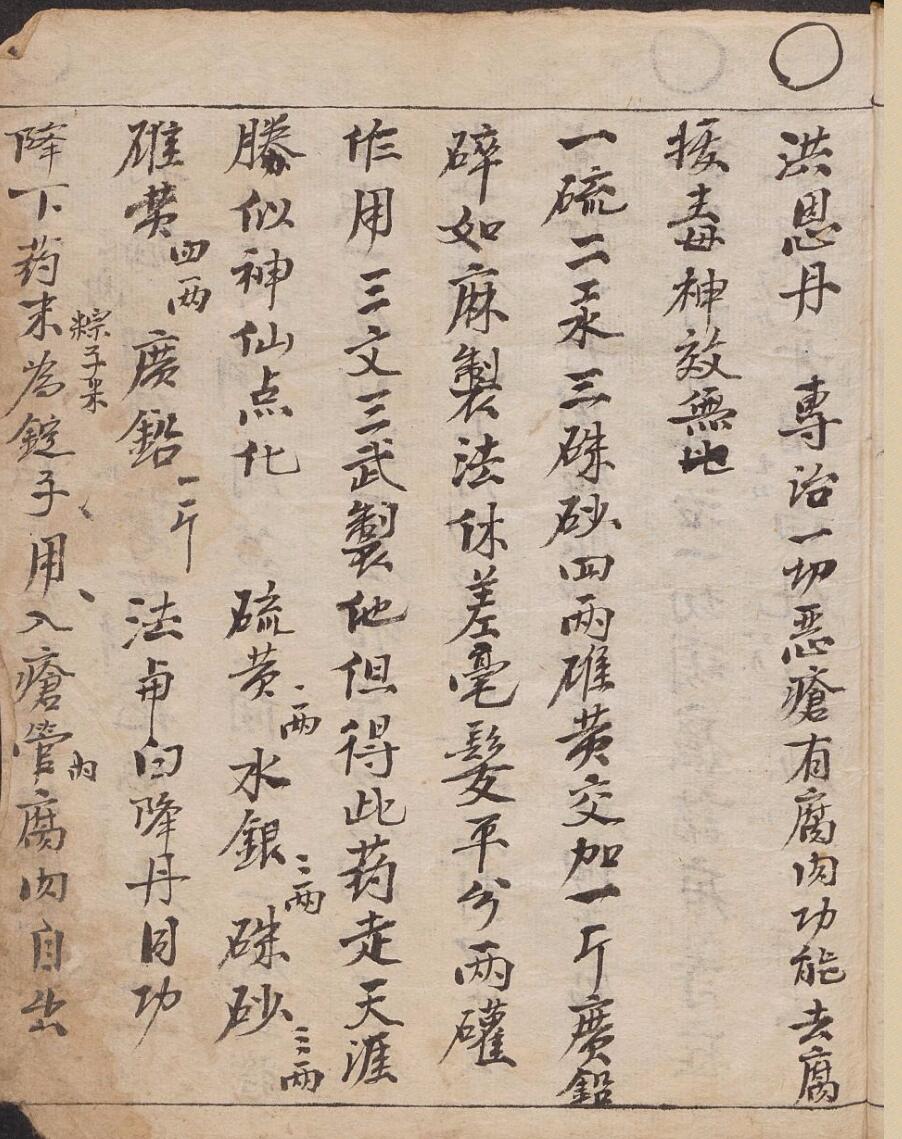 洪恩丹　專治一切恶瘡有腐肉功能去腐
拔毒神效無比
一硫二汞三硃砂四兩雄黄交加一斤廣鉛
碎如麻製法休差毫髮平分兩罐
作用三文三武製他但得此药走天涯
勝似神仙点化　硫黄一兩水銀二兩硃砂三兩
雄黄四两廣鉛一斤　法與白降丹同功
降下药末粽子米為錠子用入瘡管內腐肉自出